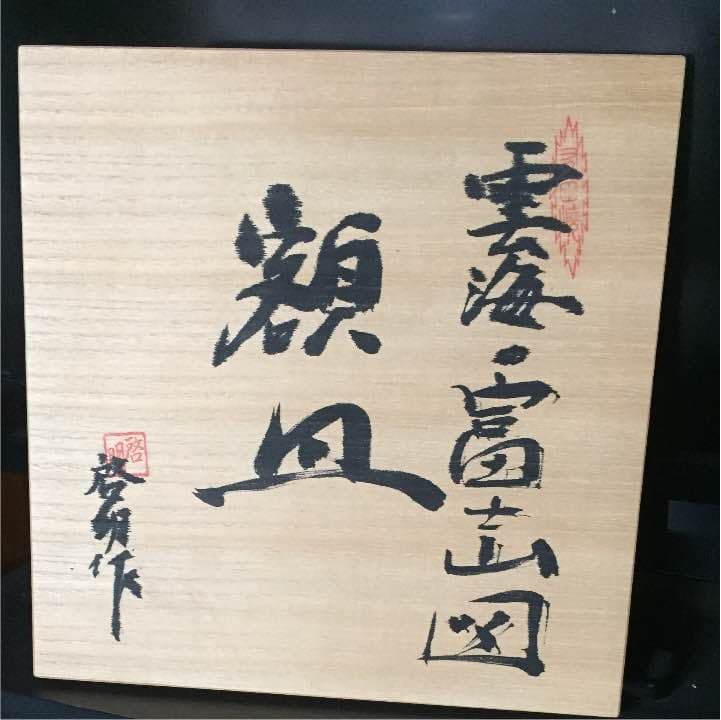 雲海・富士山図
額皿
啓明作
啓明